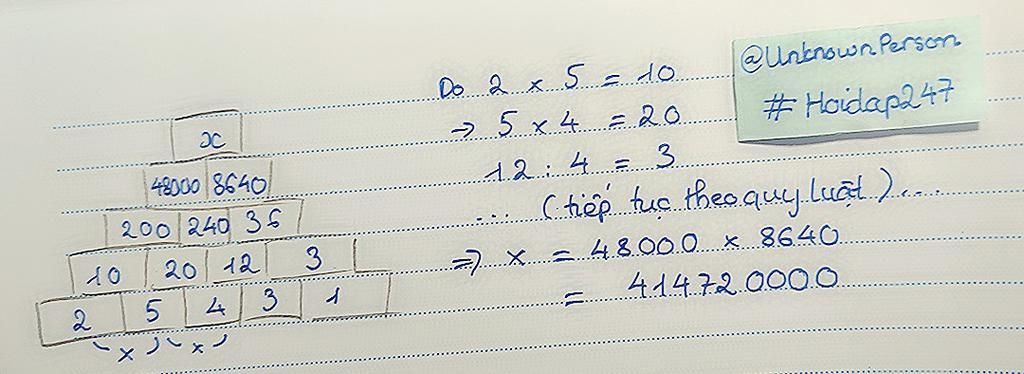 @UnknownPerson
#Hoidap247
x
48000 8640
200 240 36
10 20 12 3
2 5 4 3 1
x x
Do 2 x 5 = 10
→ 5 x 4 = 20
12 : 4 = 3
... (tiếp tục theo quy luật)...
=> x = 48000 x 8640
= 414720000